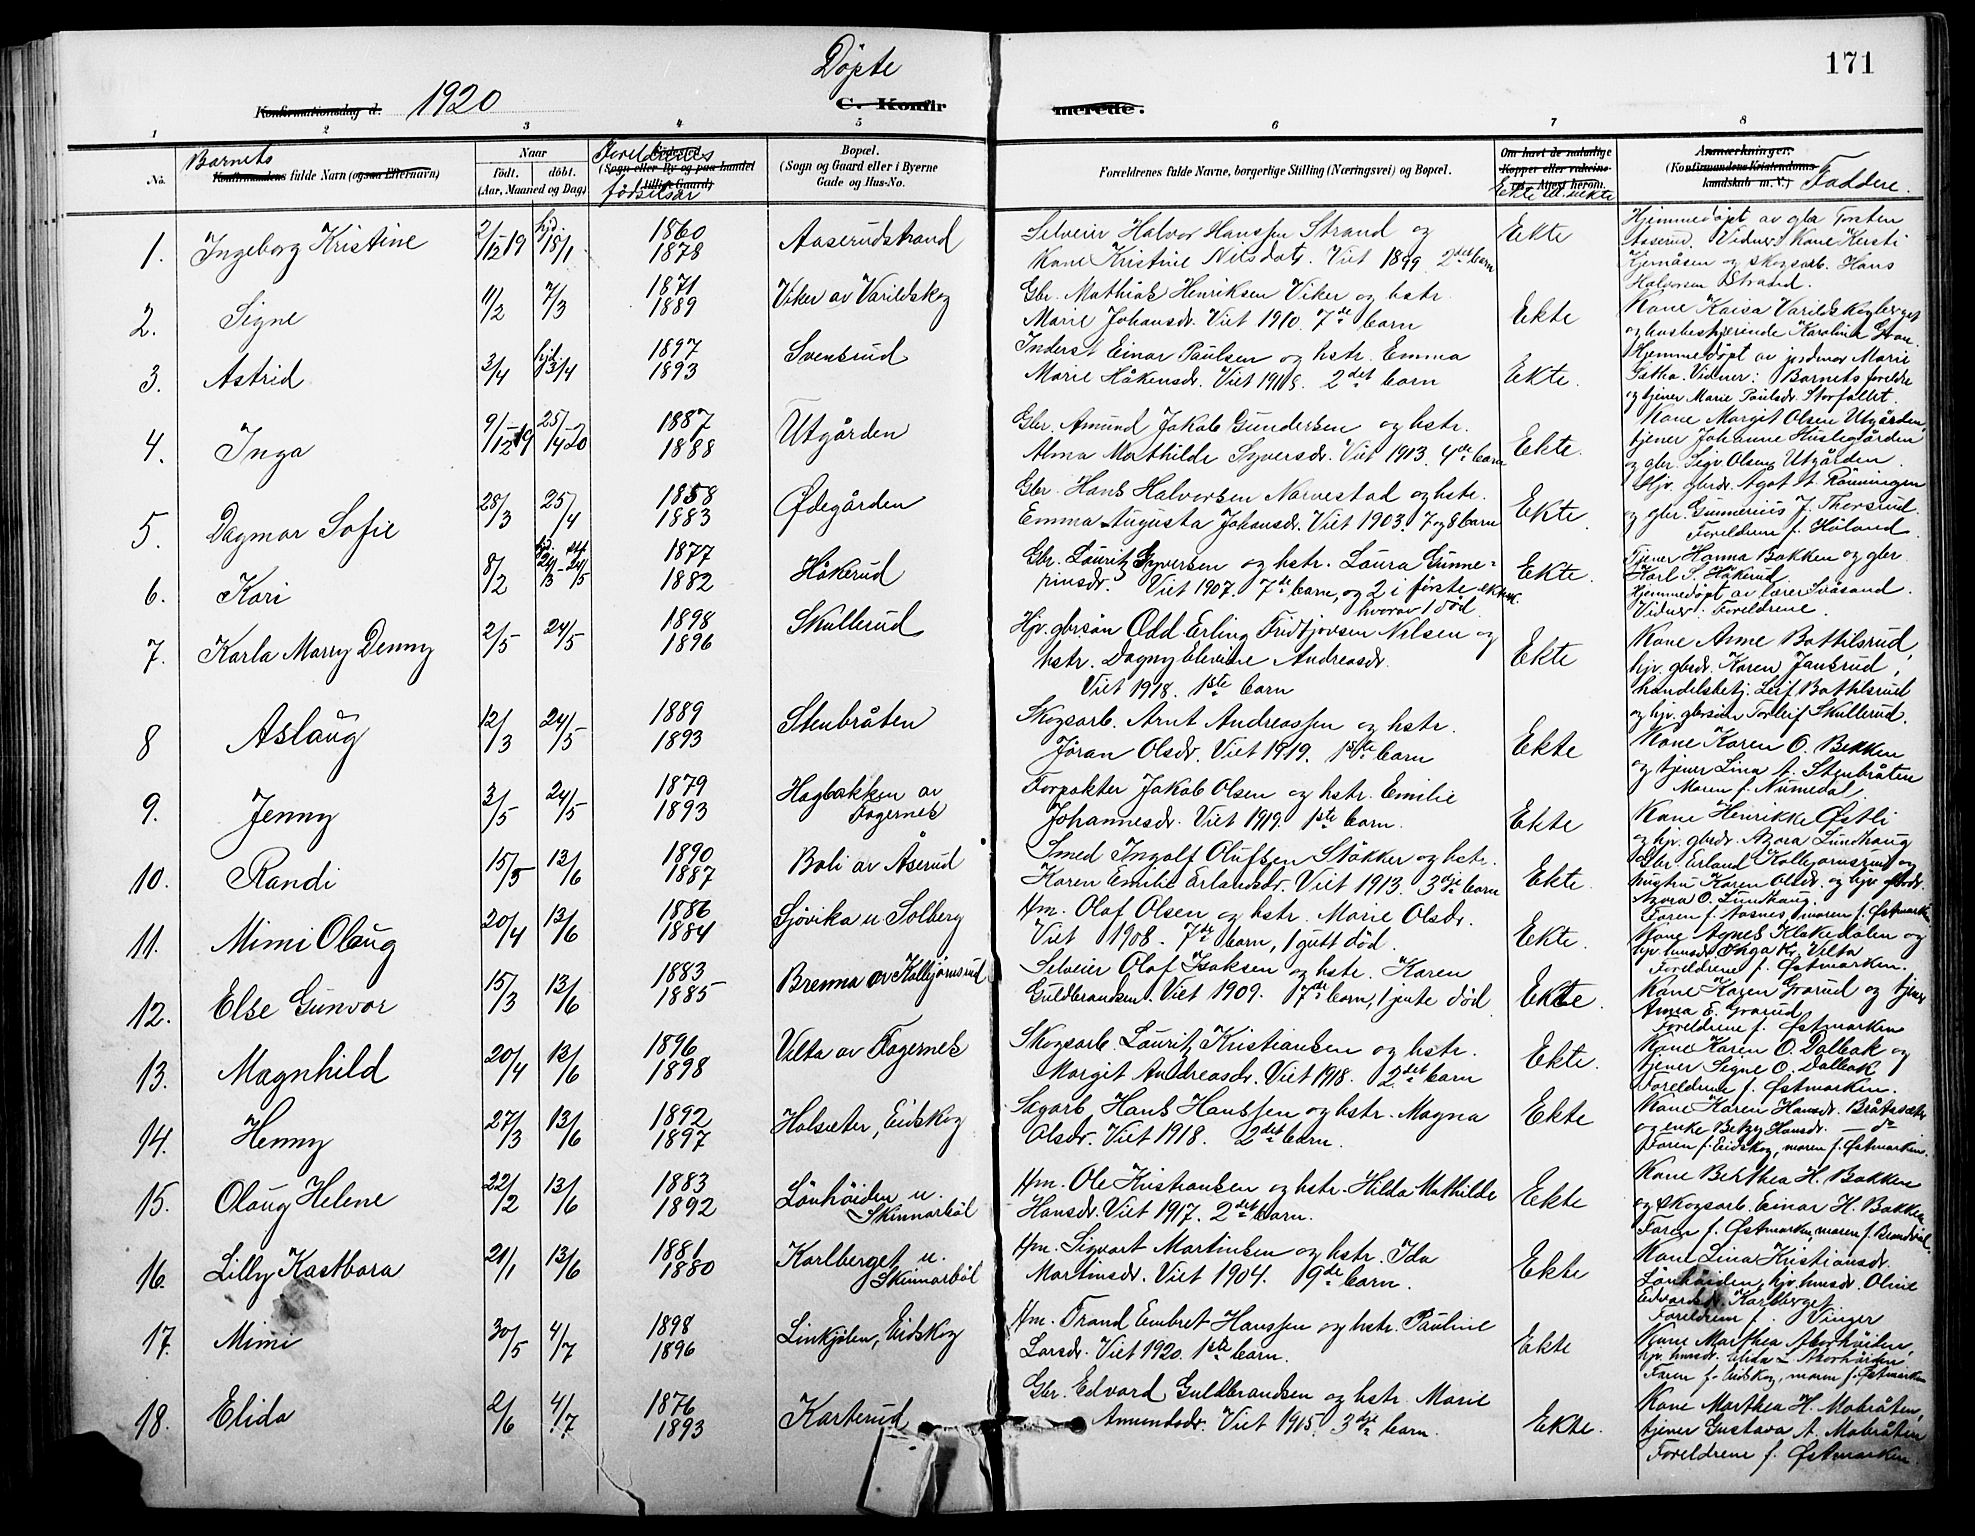 Døpte
171
Konfirmationsdag d. 1920
C. Konfirmerede.
1 2 3 4 5 6 7 8
No.
Barnets
Konfirmandens fulde Navn (ogsaa Efternavn)
Naar
Født. døbt.
(Aar, Maaned og Dag)
Foreldrenes
Fødested
(Sogn eller By og paa Landet tillige Gaard)
fødselsår
Bopæl.
(Sogn og Gaard eller i Byerne
Gade og Hus-No.
Forældrenes fulde Navne, borgerlige Stilling (Næringsvei) og Bopæl.
Om havt de naturlige
Kopper eller vakcineret. Attest herom.
Ekte el. uekte
Anmærkninger.
(Konfirmandens Kristendomskundskab m. V.)
Faddere.
1. Ingeborg Kristine 2/12 19 hjd. 18/1 1860 1878 Aaserudstrand
Selveier Halvor Hanssen Strand og
Kone Kristine Nilsdatr. Viet 1899. 2det barn
Ekte
Hjemmedøpt av gbr Torsten
Aaserud. Vidner: Kone Kersti
Kjernåsen og skogsarb. Hans
Halvorsen Strand.
2. Signe 11/2 7/3 1871 1889 Viker av Varildskog
Gbr. Mathias Henriksen Viker og hstr.
Marie Johansdr. Viet 1910. 7de barn
Ekte
Kone Kaisa Varildskogberget
og husbestyrerinde Karoline Gran.
3. Astrid 3/4 hjd. 3/4 1897 1893 Svensrud
Inderst Einar Paulsen og hstr. Emma
Marie Håkensdr. Viet 1918. 2det barn
Ekte.
Hjemmedøpt av jordmor Marie
Vidner: Barnets foreldre
og tjener Marie Paulsdr. Storfallet.
4. Inga 9/12 19 25/4-20 1887 1888 Utgården
Gbr. Amund Jakob Gundersen og hstr.
Alma Mathilde Syversdr. Viet 1913. 4de barn
Ekte.
Kone Margit Olsen Utgården,
tjener Johanne Huslegården
og gbr. Sigv. Olsen Utgården.
5. Dagmar Sofie 28/3 25/4 1858 1883 Ødegården
Gbr. Hans Halvorsen Narvestad og hstr.
Emma Augusta Johansdr. Viet 1903. 7 og 8 barn
Ekte.
Hjv. gbrdr. Agot St. Rönningen
og gbr. Gunnerius J. Thorsrud.
Foreldrene f. Höland
6. Kari 8/2 hjd. 21/3 - 24/5 1877 1882 Håkerud
Gbr. Lauritz Syversen og hstr. Laura Gunnerinsdr.
Viet 1907. 7de barn, og 2 i første ektesk.
hvorav 1 død
Ekte.
Tjener Hanna Bakken og gbr
Karl S. Håkerud
Hjemmedøpt av lærer Svåsand.
Vidner: Foreldrene.
7. Karla Marry Denny 2/5 24/5 1898 1896 Skullerud
Hjv. gbrsön Odd Erling Fridtjovsen Nilsen og
hstr. Dagny Elevine Andreasdr.
Viet 1918. 1ste barn
Ekte
Kone Anne Bottilsrud,
hjv. gbrdr. Karen Jansrud,
handelsbetj. Leif Bottilsrud
og hjv. gbrsön Torleif Skullerud.
8 Aslaug 12/3 24/5 1889 1893 Stenbråten
Skogsarb. Arnt Andreassen og hstr.
Jöran Olsdr. Viet 1919. 1ste barn
Ekte
Kone Karen O. Bekken
og tjener Lina A. Stenbråten
Moren f. Numedal.
9. Jenny 3/5 24/5 1879 1893 Hagbakken av Fagernes
Forpakter Jakob Olsen og hstr. Emilie
Johannesdr. Viet 1919. 1ste barn.
Ekte
Kone Henrikke Østli
og hjv. gbrdr. Azora Lundhaug
10. Randi 15/5 13/6 1890 1887 Boli av Åserud
Smed Ingolf Olufsen Stökker og hstr.
Karen Emilie Erlandsdr. Viet 1913. 3dje barn
Ekte.
Gbr. Erland Kolbjørnsrud og
hustru Karen Olsdr. og hjv. gbrdr.
Azora O. Lundhaug.
Faren f. Aasnes, moren f. Østmarken
11. Mimi Olaug 20/4 13/6 1886 1884 Sjövika u. Solberg
Hm. Olaf Olsen og hstr. Marie Olsdr.
Viet 1908. 7de barn, 1 gutt död.
Ekte.
Kone Agnes Klokkedalen og
hjv. hmsdr. Inga K. Velta
Foreldrene f. Østmarken.
12. Else Gunvor 15/3 13/6 1883 1885 Brenna av Kolbjørnsrud
Selveier Olaf Isaksen og hstr. Karen
Guldbrandsen. Viet 1909. 7de barn, 1 jente död
Ekte.
Kone Karen Grarud og tjener
Anna E. Grarud
Foreldrene f. Østmarken
13. Magnhild 20/4 13/6 1896 1898 Velta av Fagernes
Skogsarb. Lauritz Kristiansen og hstr.
Margit Andreasdr. Viet 1918. 2det barn
Ekte.
Kone Karen O. Dalbak og
tjener Signe O. Dalbak
Foreldrene f. Østmarken.
14. Henny 27/3 13/6 1892 1897 Holsæter, Eidskog
Sagarb. Hans Hanssen og hstr. Magna
Olsdr. Viet 1918. 2det barn.
Ekte
Kone Karen Hansdr. Bråtesæter
og enke Betzy Hansdr. — do
Faren f. Eidskog, moren f. Østmarken.
15. Olaug Helene 22/2 13/6 1883 1892 Lönhöiden u. Skinnarböl
Hm. Ole Kristiansen og hstr. Hilda Mathilde
Hansdr. Viet 1917. 2det barn.
Ekte
Kone Berthea H. Bakken
og skogsarb. Einar H. Bakken
Faren f. Østmarken, moren f. Brandval.
16. Lilly Kastbara 21/1 13/6 1881 1880 Karlberget u. Skinnarböl
Hm. Sigvart Martinsen og hstr. Ida
Martinsdr. Viet 1904. 9de barn.
Ekte
Kone Lina Kristiansdr.
Lönhöiden, hjv. hmsdr. Oline
Edvardsdr. Karlberget
Foreldrene f. Vinger
17. Mimi 30/5 4/7 1898 1896 Linkjölen, Eidskog
Hm. Trand Embret Hanssen og hstr. Pauline
Larsdr. Viet 1920. 1ste barn.
Ekte
Kone Marthea Aborhöiden,
hjv. hmsdr. Elida Aborhöiden.
Faren f. Eidskog, moren f. Østmarken
18. Elida 2/6 4/7 1876 1893 Karterud
Gbr. Edvard Guldbrandsen og hstr. Marie
Amundsdr. Viet 1915. 3dje barn.
Ekte.
Kone Marthea H. Mobråten,
tjener Gustava A. Mobråten
Foreldrene f. Østmarken.